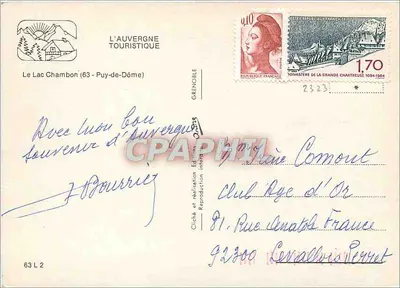 L'AUVERGNE
TOURISTIQUE
Le Lac Chambon (63 - Puy-de-Dôme)
0,10
MONASTERE DE LA GRANDE CHARTREUSE 1084-1984
1,70
2323
GRENOBLE
Cliché et réalisation Edition
Reproduction interdite
Avec mon bon
souvenir d'Auvergne
J Bourrier
CPAPHIL
Comont
Club Age d'Or
81, Rue Anatole France
92300 Levallois Perret
63 L 2